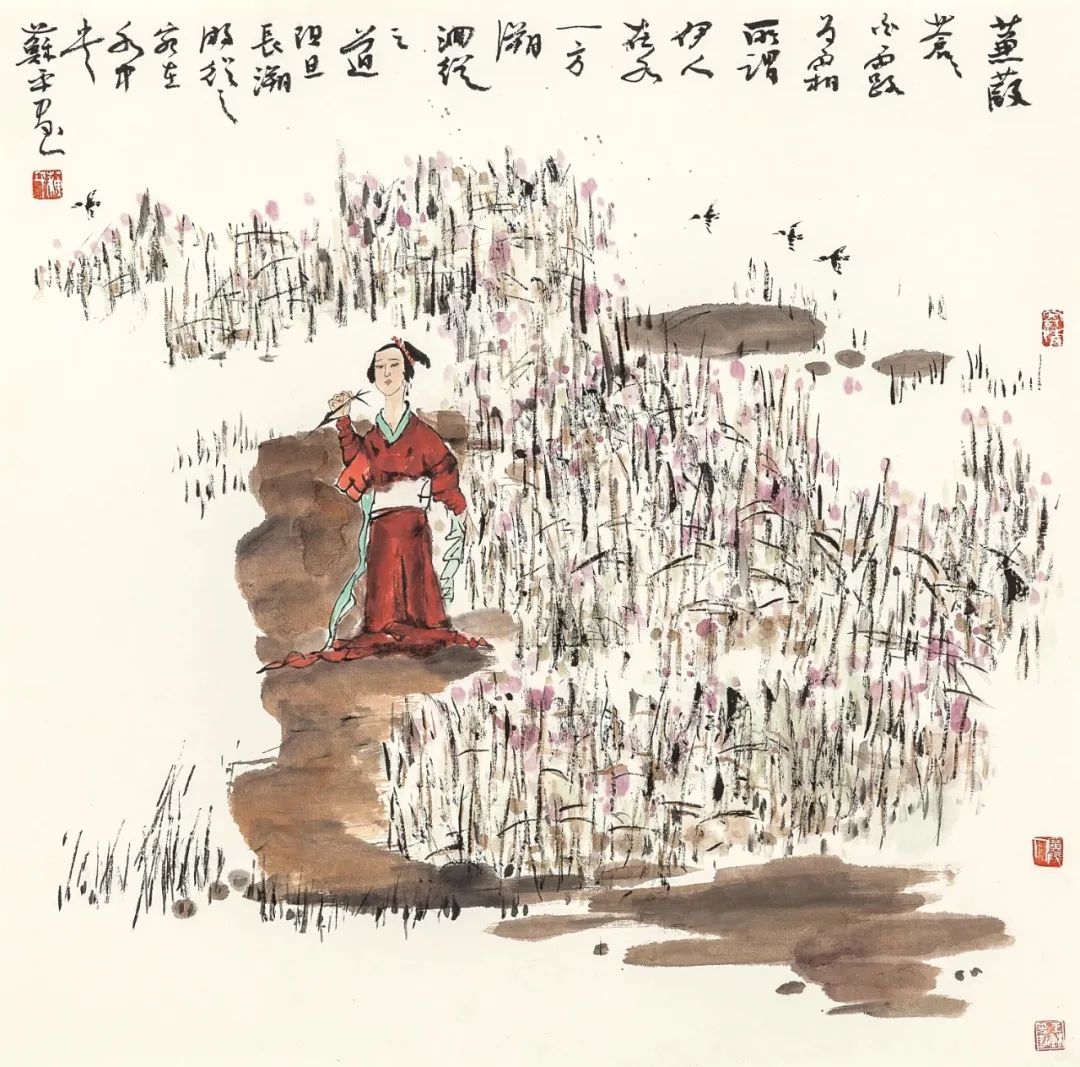 蒹葭
蒼々
白露
为霜
所謂
伊人
在水
一方
溯
洄從
之
道
阻且
長溯
游從之
宛在
水中
央
蘇平画